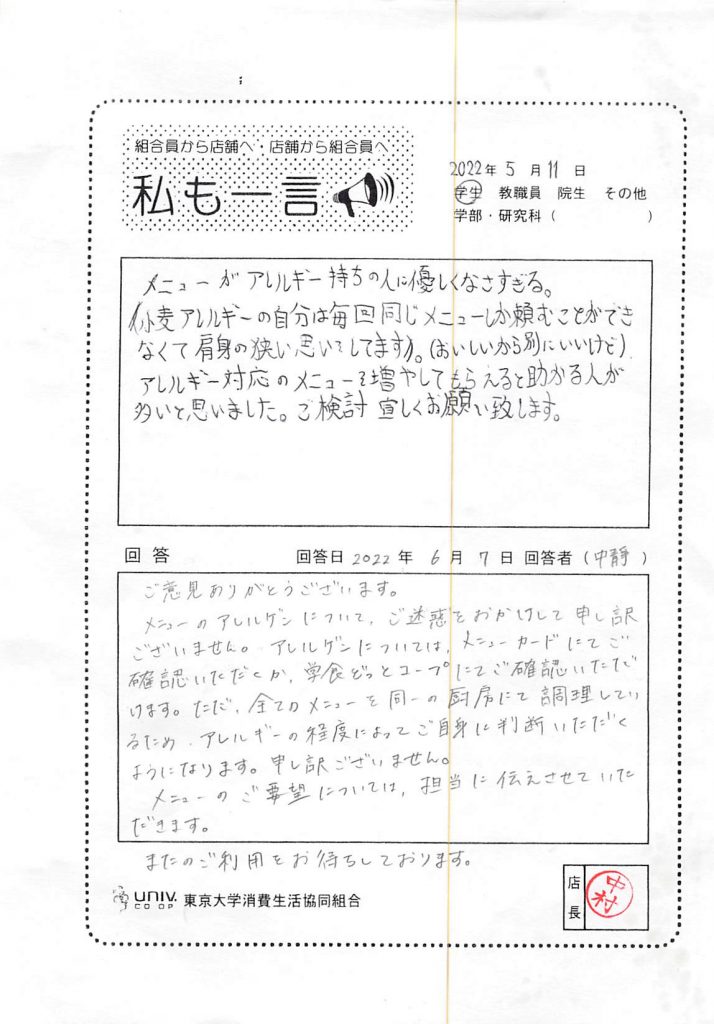 組合員から店舗へ・店舗から組合員へ
私も一言
2022年 5 月 11 日
学生 教職員 院生 その他
学部・研究科 ( )
メニューがアレルギー持ちの人に優しくなさすぎる。
(小麦アレルギーの自分は毎回同じメニューしか頼むことができ
なくて肩身の狭い思いをしてます)。(おいしいから別にいいけど)
アレルギー対応のメニューを増やしてもらえると助かる人が
多いと思いました。ご検討宜しくお願い致します。
回答 回答日 2022 年 6 月 7 日 回答者 (中静)
ご意見ありがとうございます。
メニューのアレルゲンについて、ご迷惑をおかけして申し訳
ございません。アレルゲンについては、メニューカードにてご
確認いただくか、学食どっとコープにてご確認いただだ
けます。ただ、全てのメニューを同一の厨房にて調理してい
るため、アレルギーの程度によってご自身に判断いただく
ようになります。申し訳ございません。
メニューのご要望については、担当に伝えさせていた
だきます。
またのご利用をお待ちしております。
UNIV. CO-OP 東京大学消費生活協同組合
店長
中村